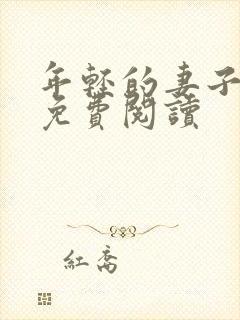 年輕的妻子
免費閱讀
紅喬